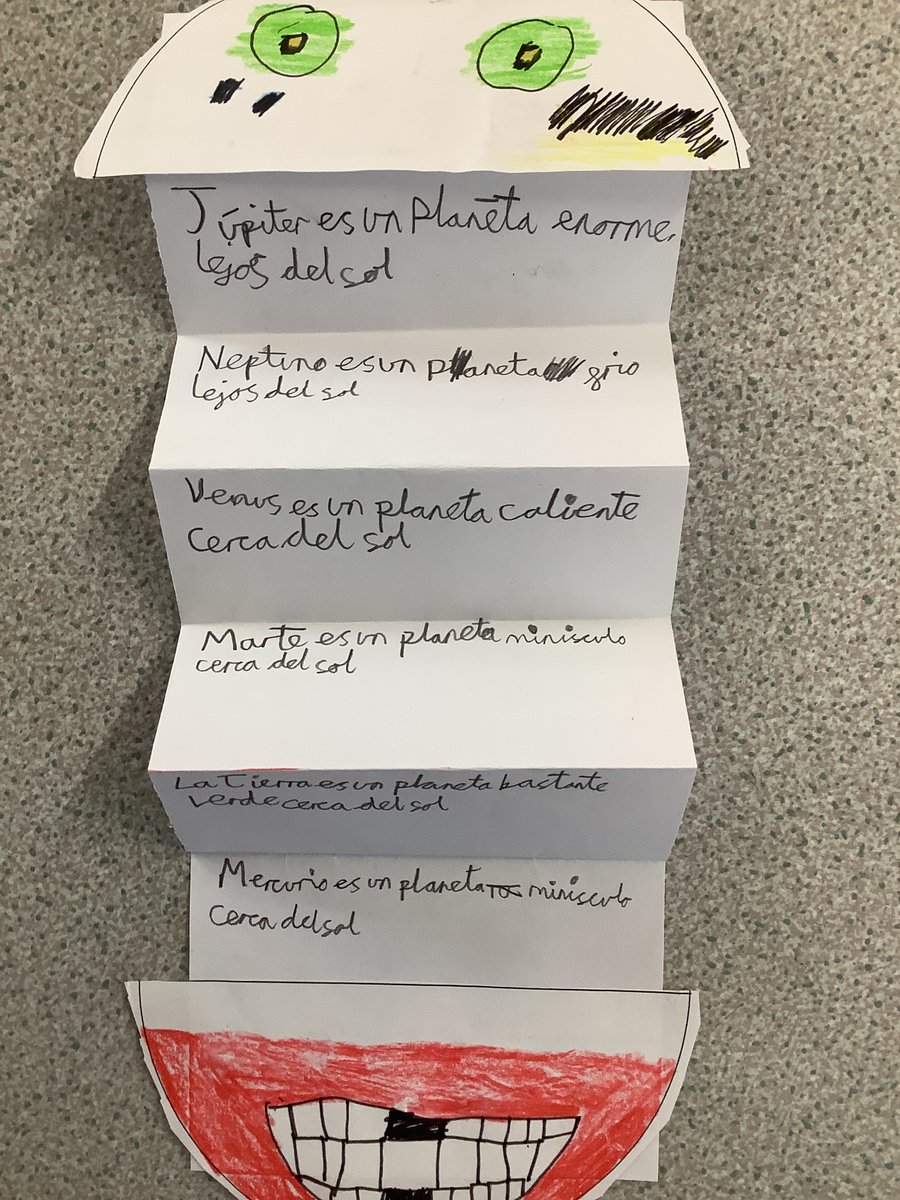 Júpiter es un planeta enorme
lejos del sol
Neptuno es un planeta grio
lejos del sol
Venus es un planeta caliente
cerca del sol
Marte es un planeta minisculo
cerca del sol
La Tierra es un planeta bastante
verde cerca del sol
Mercurio es un planeta minisculo
cerca del sol